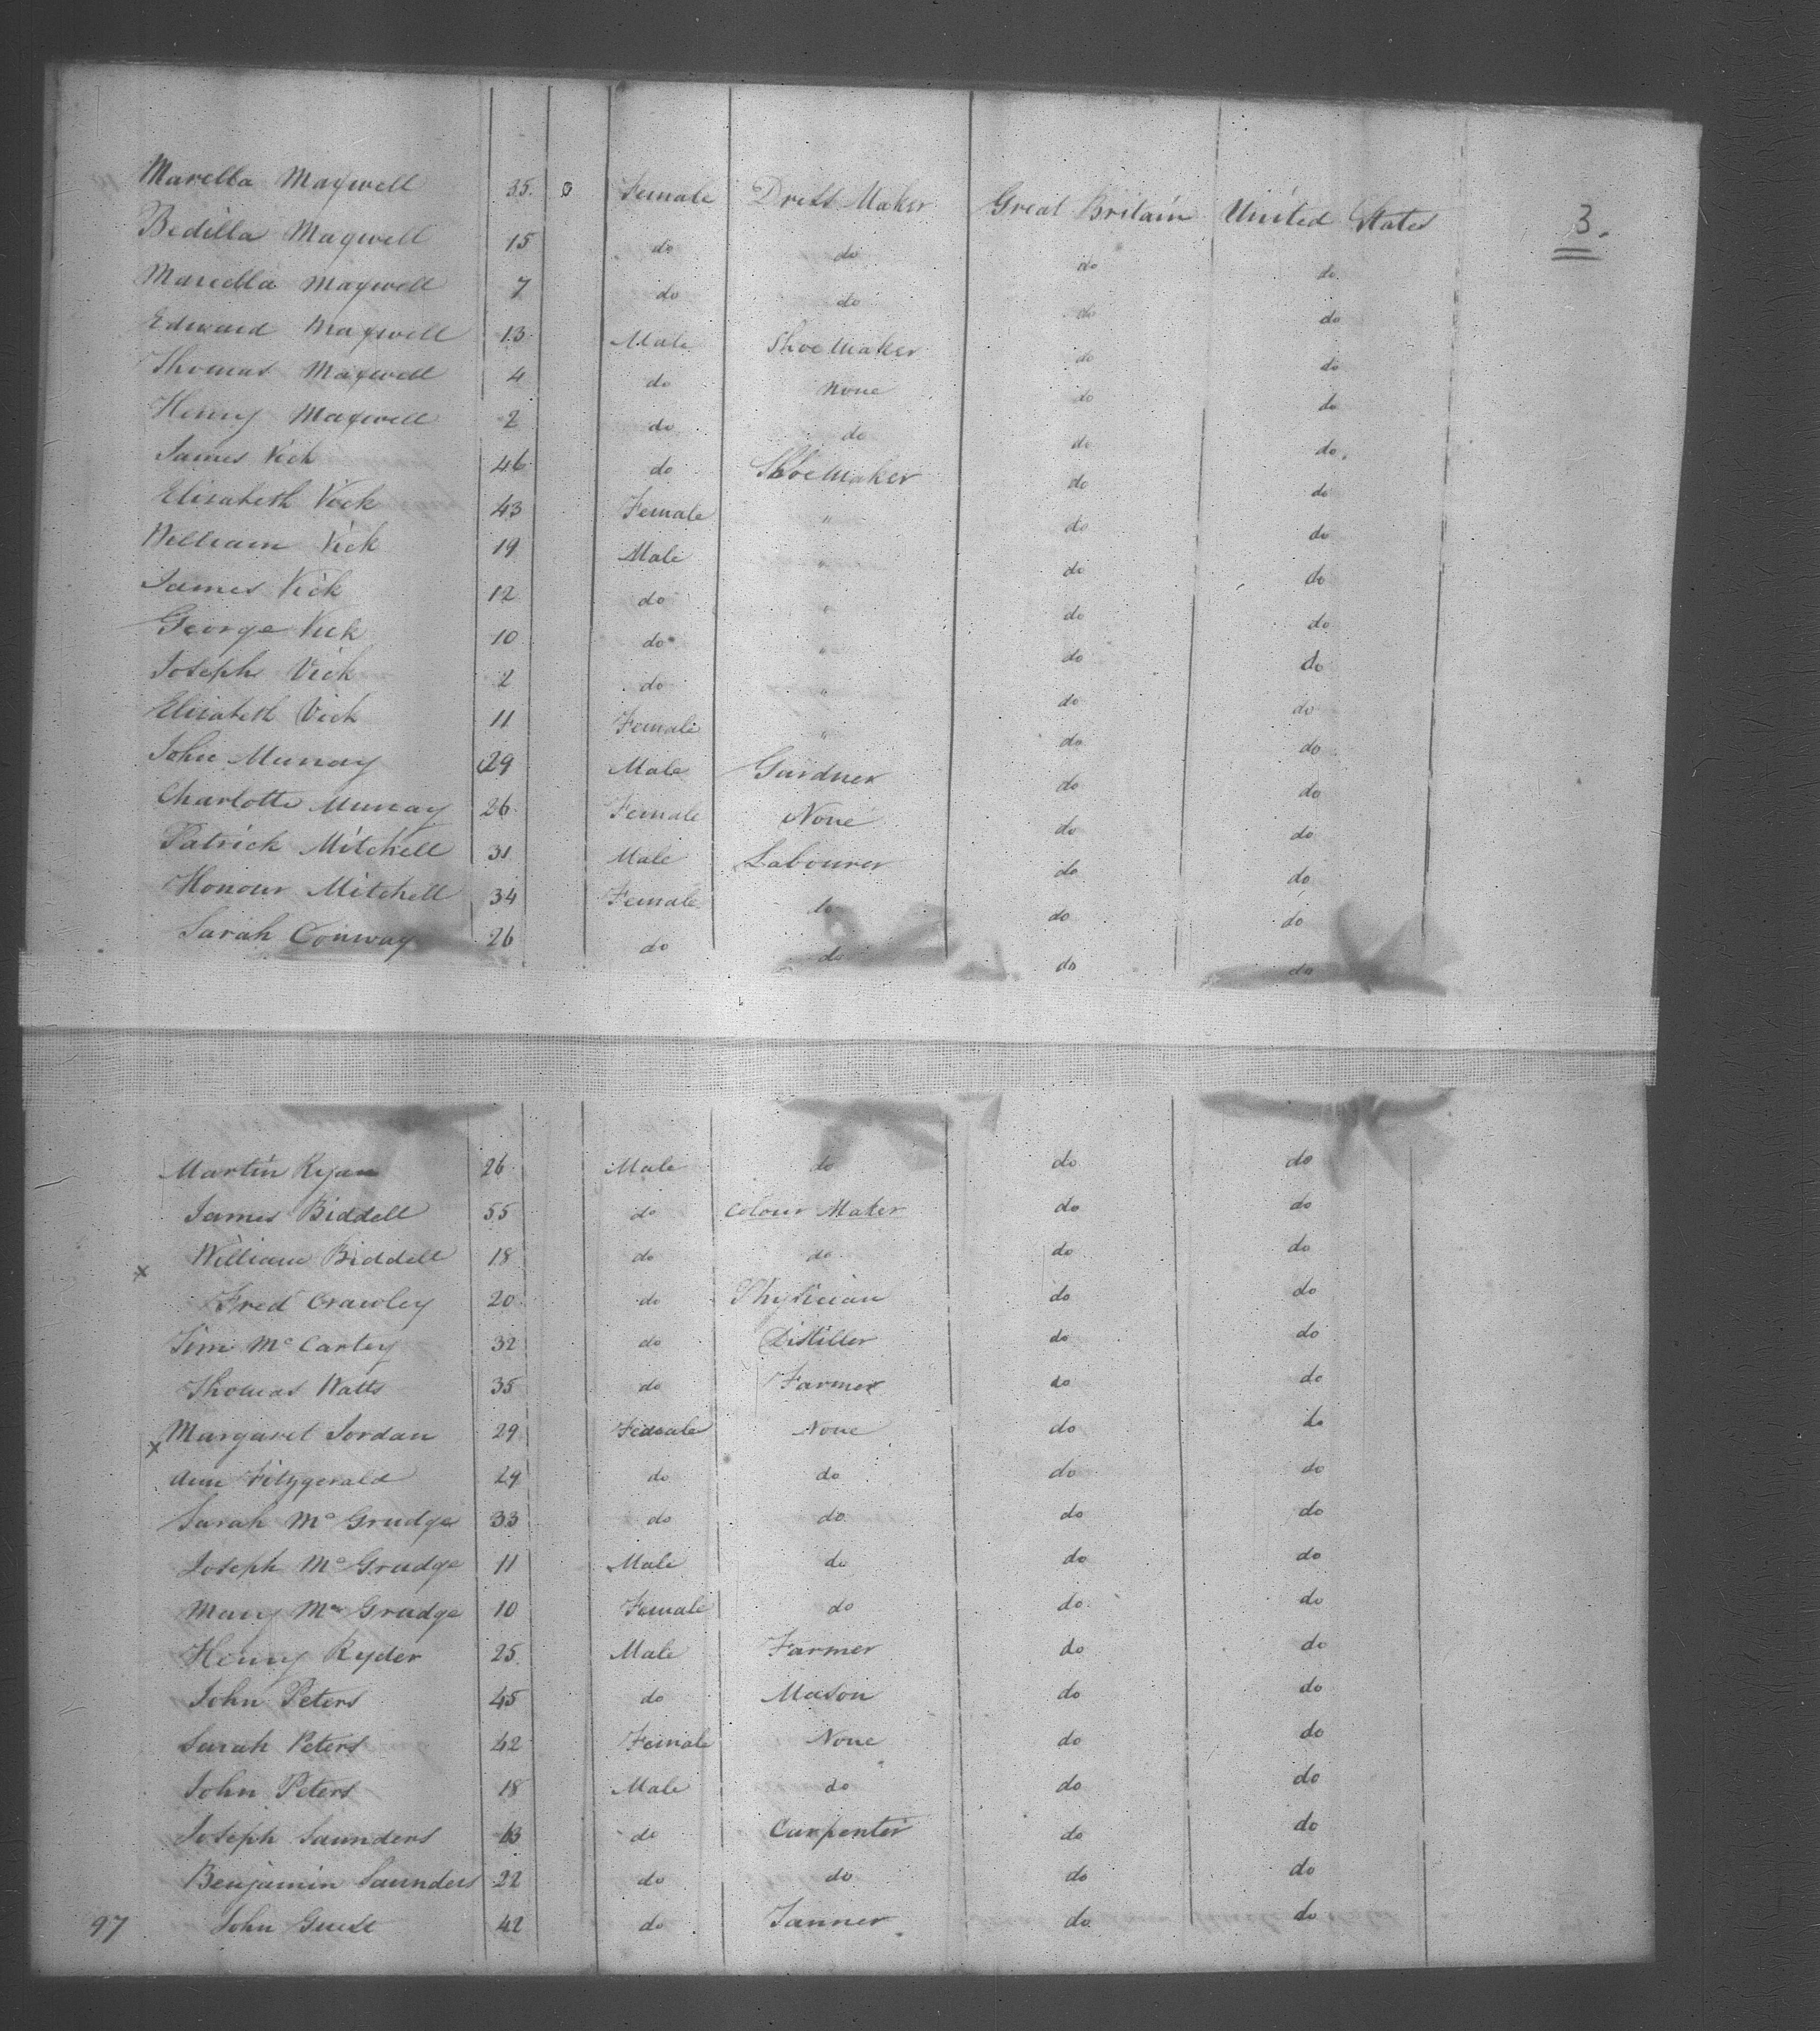 3.
Marella Maxwell 35. 0 Female Dress Maker Great Britain United States
Bedilla Maxwell 15 do do do do
Marcella Maxwell 7 do do do do
Edward Maxwell 13 Male Shoe Maker do do
Thomas Maxwell 4 do None do do
Henry Maxwell 2 do do do do
James Vick 46 do Shoe Maker do do
Elisabeth Vick 43 Female " do do
William Vick 19 Male " do do
James Vick 12 do " do do
George Vick 10 do " do do
Joseph Vick 2 do " do do
Elisabeth Vick 11 Female " do do
John Murray 29 Male Gardner do do
Charlotte Murray 26 Female None do do
Patrick Mitchell 31 Male Labourer do do
Honour Mitchell 34 Female do do do
Sarah Conway 26 do do do do
Martin Ryan 26 Male do do do
James Biddell 55 do Colour Maker do do
x William Biddell 18 do do do do
Fred Crawley 20 do Physician do do
Jim Mc Cartey 32 do Distiller do do
Thomas Watts 35 do Farmer do do
x Margaret Jordan 29 Female None do do
Ann Fitzgerald 29 do do do do
Sarah Mc Grudge 33 do do do do
Joseph Mc Grudge 11 Male do do do
Mary Mc Grudge 10 Female do do do
Henry Ryder 25 Male Farmer do do
John Peters 45 do Mason do do
Sarah Peters 42 Female None do do
John Peters 18 Male do do do
Joseph Saunders do Carpenter do do
Benjamin Saunders 22 do do do do
97 John Guest 42 do Tanner do do